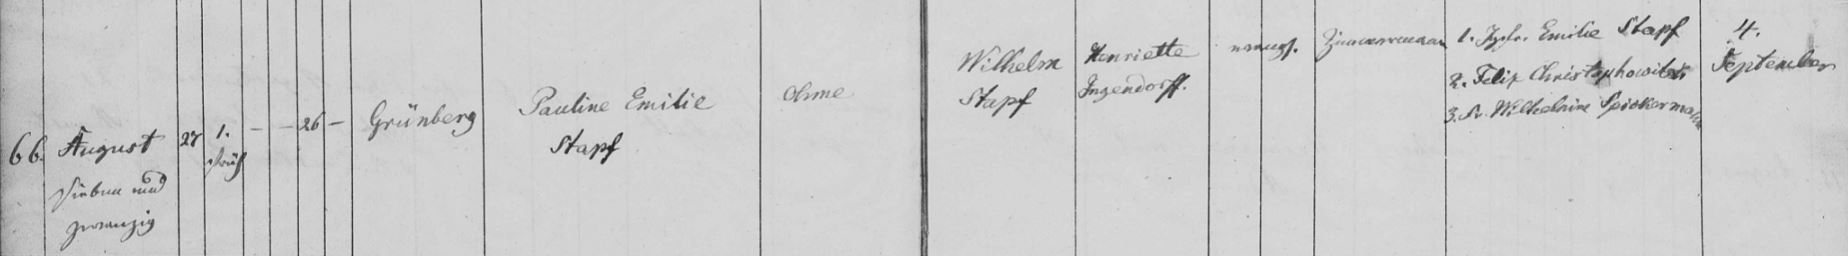 66. August 27 1. – – 26 – Grünberg Pauline Emilie ohne Wilhelm Henriette evang. Zimmermann 1. Jgfr. Emilie Stapf 4.
sieben und früh Stapf Stapf Ingendorff. 2. Felix Christophowitsch September
zwanzig 3. Fr. Wilhelmine Speiskermann